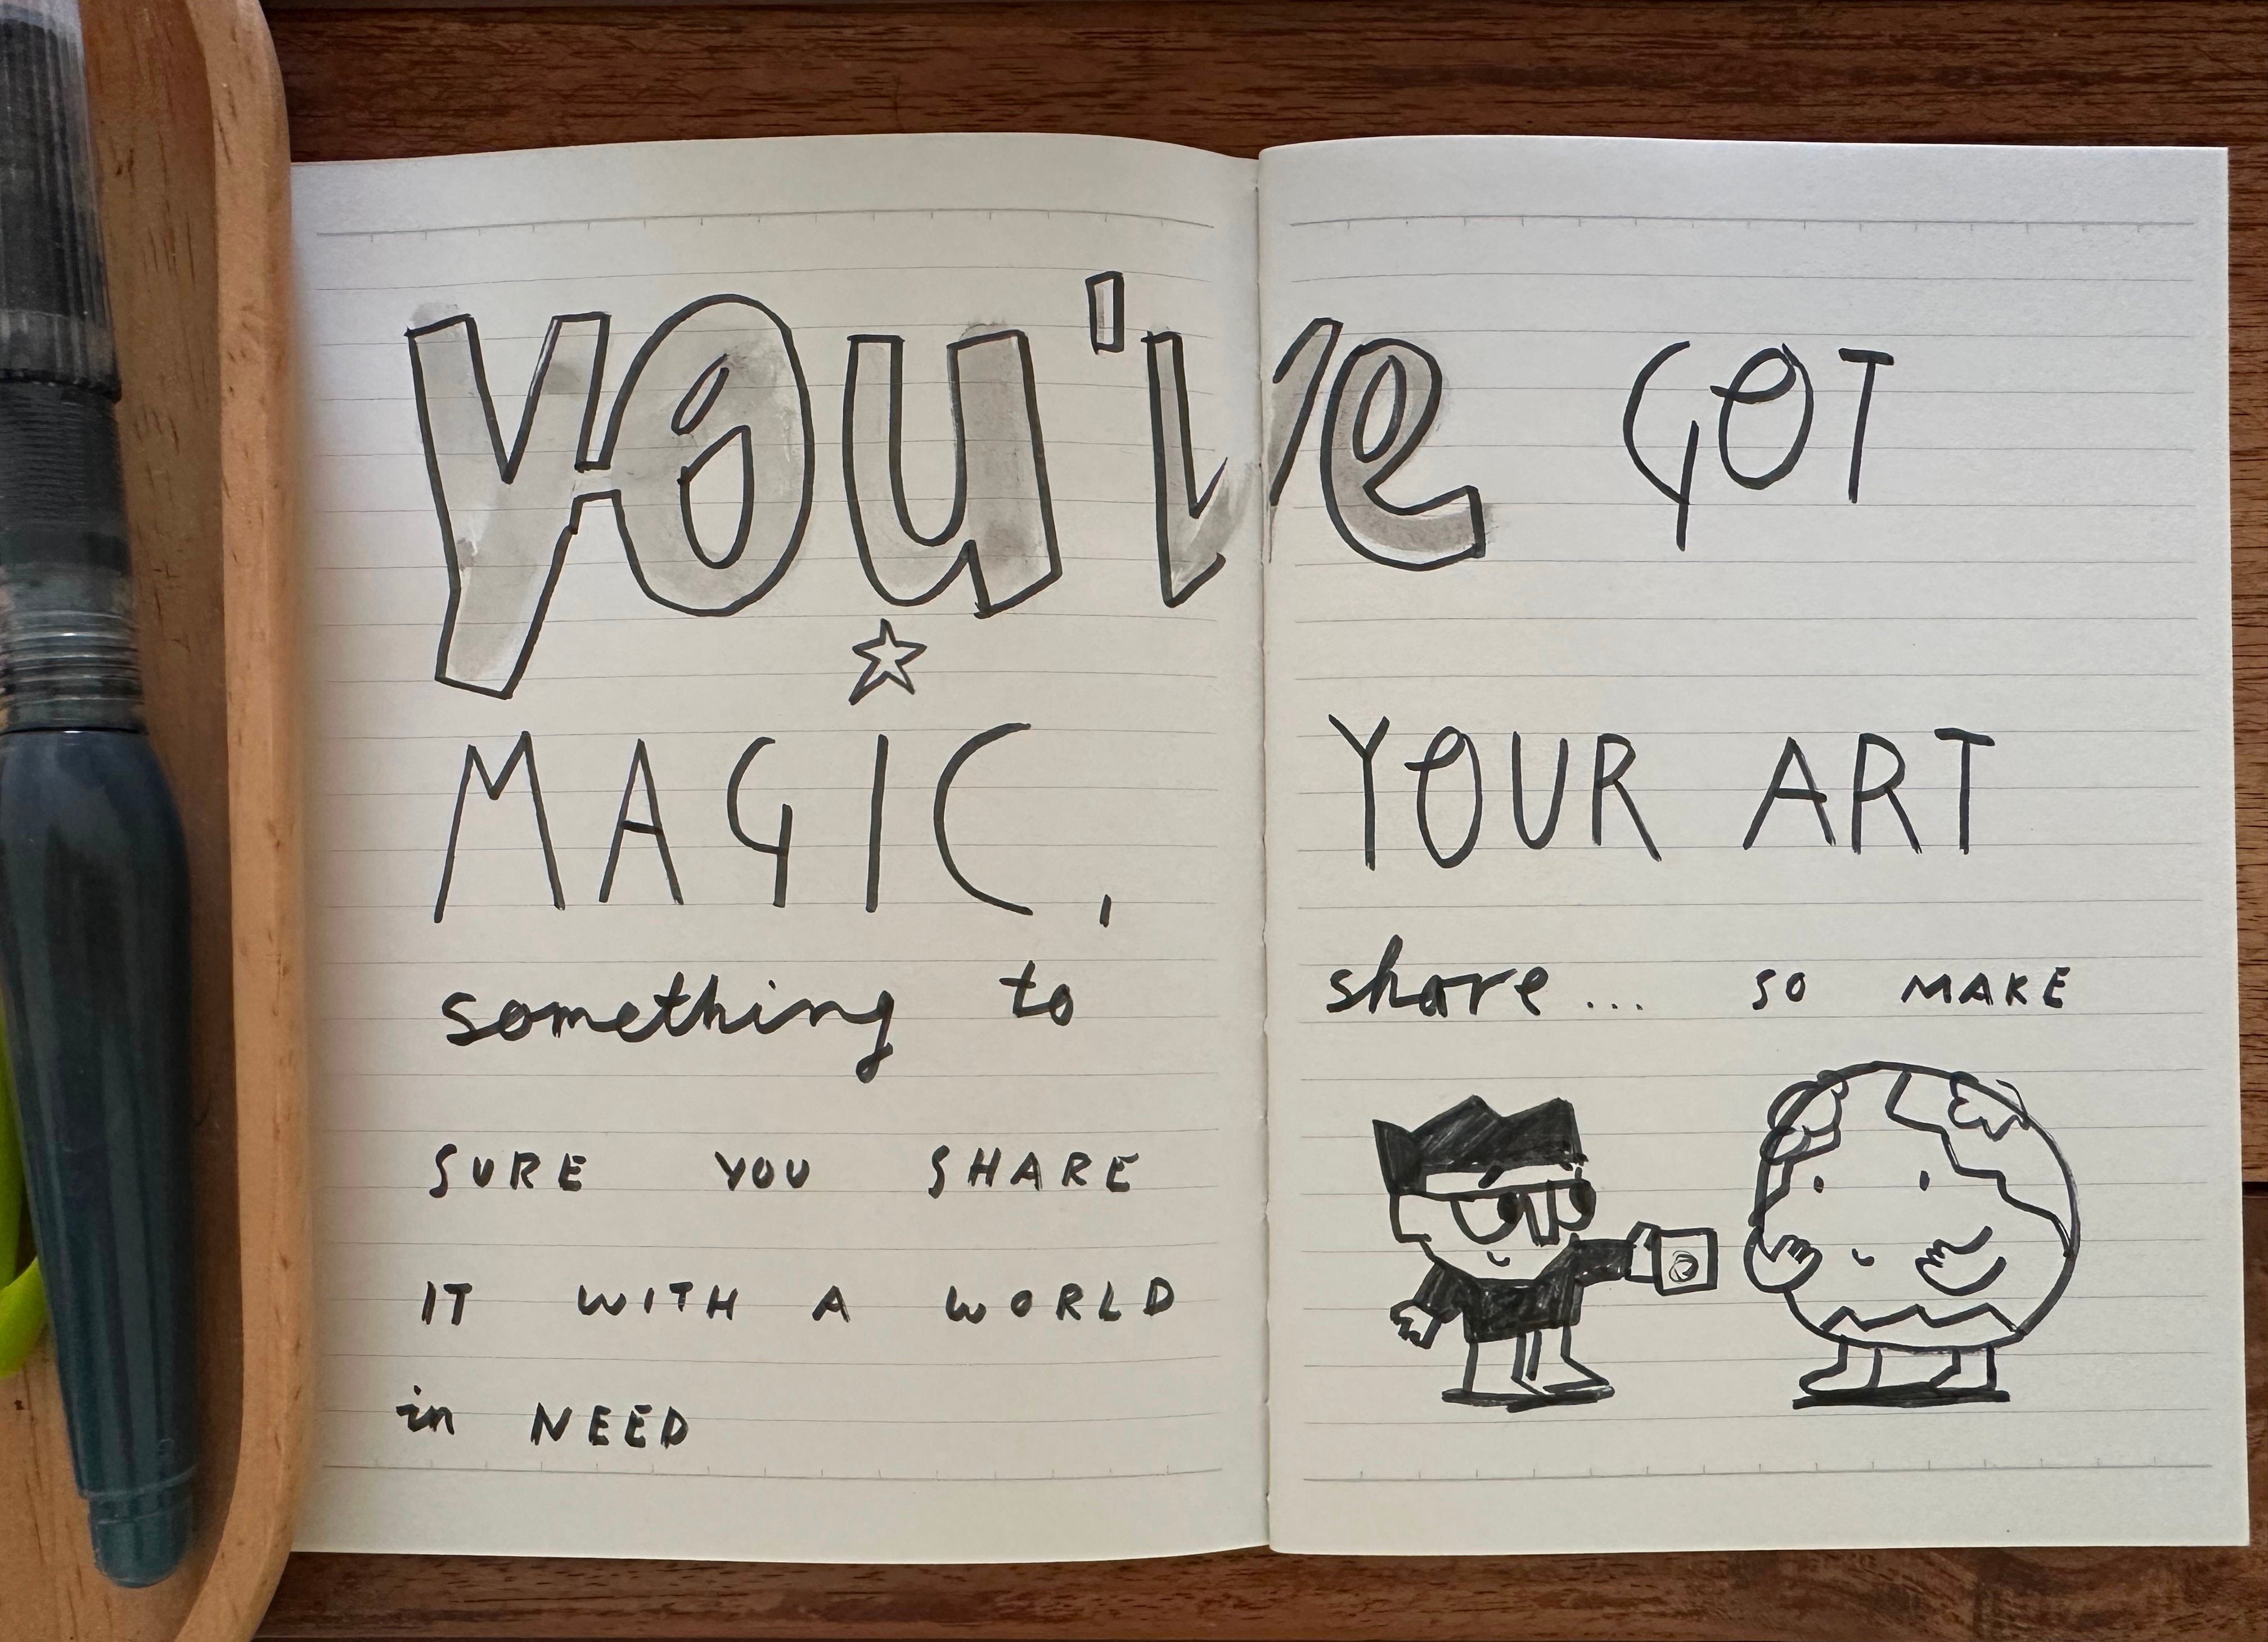 you've GOT
MAGIC, YOUR ART
something to share... SO MAKE
SURE YOU SHARE
IT WITH A WORLD
in NEED